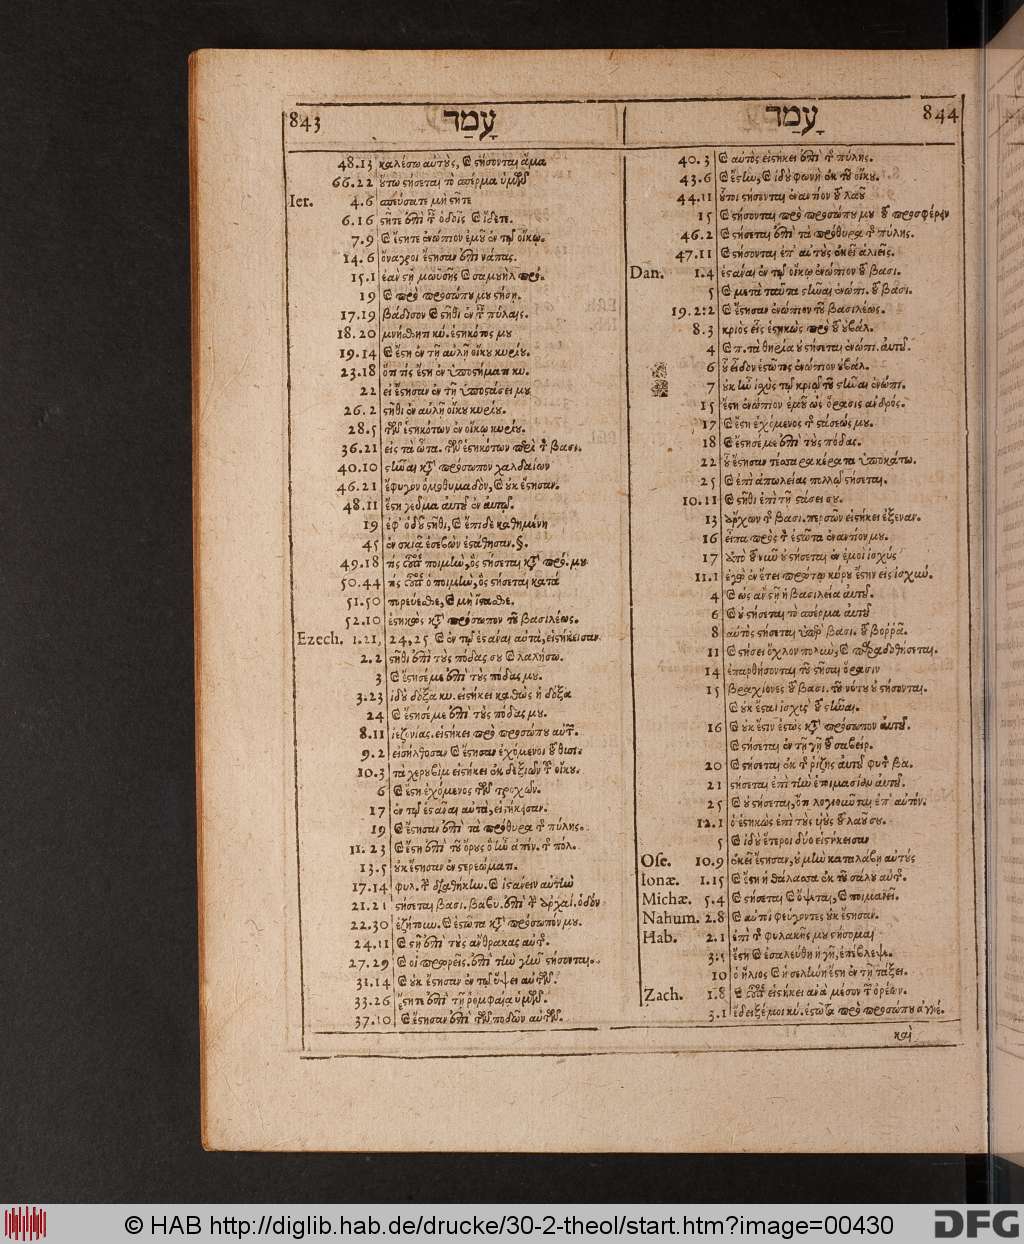 843 עָמַד
48.13 καλέσω αὐτοὺς, καὶ στήσονται ἅμα
66.22 οὕτω στήσεται τὸ σπέρμα ὑμῶν
Ier. 4.6 σπεύσατε μὴ στῆτε
6.16 στῆτε ἐπὶ τ̃ ὁδοῖς καὶ ἴδετε.
7.9 καὶ ἔστητε ἐνώπιον ἐμοῦ ἐν τῷ οἴκῳ.
14.6 ὄναγροι ἔστησαν ἐπὶ νάπας.
15.1 ἐὰν στῇ μωϋσῆς καὶ σαμουὴλ πρό.
19 καὶ πρὸ προσώπου μου στήσῃ.
17.19 βάδισον καὶ στῆθι ἐν τ̃ πύλαις.
18.20 μνήσθητι κυ. ἑστηκότος μου
19.14 καὶ ἔστη ἐν τῇ αὐλῇ οἴκου κυρίου.
23.18 ὅτι τίς ἔστη ἐν ὑποστήματι κυ.
22 εἰ ἔστησαν ἐν τῇ ὑποστάσει μου
26.2 στῆθι ἐν αὐλῇ οἴκου κυρίου.
28.5 τῶν ἑστηκότων ἐν οἴκῳ κυρίου.
36.21 εἰς τὰ ὦτα. τῶν ἑστηκότων περὶ τ̃ βασι.
40.10 στῆναι κατὰ πρόσωπον χαλδαίων
46.21 ἔφυγον ὁμοθυμαδὸν, καὶ οὐκ ἔστησαν.
48.11 ἔστη γεῦμα αὐτοῦ ἐν αὐτῷ.
19 ἐφ' ὁδοῦ στῆθι, καὶ ἔπιδε καθημένη
45 ἐν σκιᾷ ἐσεβὼν ἐστάθησαν. §.
49.18 τίς οὗτος ποιμὴν, ὃς στήσεται κατὰ πρό. μου
50.44 τίς οὗτος ὁ ποιμὴν, ὃς στήσεται κατὰ
51.50 πορεύεσθε, καὶ μὴ ἵστασθε.
52.10 ἑστηκὼς κατὰ πρόσωπον τοῦ βασιλέως.
Ezech. 1.21, 24,25 καὶ ἐν τῷ ἑστάναι αὐτὰ, εἱστήκεισαν
2.2 στῆθι ἐπὶ τοὺς πόδας σου καὶ λαλήσω.
3 καὶ ἔστησέ με ἐπὶ τοὺς πόδας μου.
3.23 ἰδοὺ δόξα κυ. εἱστήκει καθὼς ἡ δόξα
24 καὶ ἔστησέ με ἐπὶ τοὺς πόδας μου.
8.11 ἰεζονίας. εἱστήκει πρὸ προσώπου αὐτ̃.
9.2 εἰσήλθοσαν καὶ ἔστησαν ἐχόμενοι τοῦ θυσι.
10.3 τὰ χερουβὶμ εἱστήκει ἐκ δεξιῶν τοῦ οἴκου.
6 καὶ ἔστη ἐχόμενος τῶν τροχῶν.
17 ἐν τῷ ἑστάναι αὐτὰ, εἱστήκεισαν.
19 καὶ ἔστησαν ἐπὶ τὰ πρόθυρα τ̃ πύλης.
11.23 καὶ ἔστη ἐπὶ τοῦ ὄρους ὃ ἦν ἀπέν. τ̃ πόλ.
13.5 οὐκ ἔστησαν ἐν στερεώματι.
17.14 φυλ. τ̃ διαθήκην. καὶ ἱστάνειν αὐτὴν
21.21 στήσεται βασι. βαβυ. ἐπὶ τ̃ ἀρχαί. ὁδὸν
22.30 ἐζήτουν. καὶ ἑστῶτα κατὰ πρόσωπόν μου.
24.11 καὶ στῇ ἐπὶ τοὺς ἄνθρακας αὐτ̃.
27.29 καὶ οἱ πρωρεῖς. ἐπὶ τὴν γῆν στήσονται.
31.14 καὶ οὐκ ἔστησαν ἐν τῷ ὕψει αὐτῶν.
33.26 ἔστητε ἐπὶ τῇ ῥομφαίᾳ ὑμῶν.
37.10 καὶ ἔστησαν ἐπὶ τῶν ποδῶν αὐτῶν.
עָמַד 844
40.3 καὶ αὐτὸς εἱστήκει ἐπὶ τ̃ πύλης.
43.6 καὶ ἔστην, καὶ ἰδοὺ φωνὴ ἐκ τοῦ οἴκου.
44.11 οὗτοι στήσονται ἐναντίον τοῦ λαοῦ
15 καὶ στήσονται πρὸ προσώπου μου τοῦ προσφέρειν
46.2 καὶ στήσεται ἐπὶ τὰ πρόθυρα τ̃ πύλης.
47.11 καὶ στήσονται ἐπ' αὐτοὺς ἐκεῖ ἁλιεῖς.
Dan. 1.4 ἑστάναι ἐν τῷ οἴκῳ ἐνώπιον τοῦ βασι.
5 καὶ μετὰ ταῦτα στῆναι ἐνώπι. τοῦ βασι.
19.2:2 καὶ ἔστησαν ἐνώπιον τοῦ βασιλέως.
8.3 κριὸς εἷς ἑστηκὼς πρὸ τοῦ οὐβάλ.
4 καὶ π. τὰ θηρία οὐ στήσεται ἐνώπι. αὐτοῦ.
6 οὗ εἶδον ἑστῶτος ἐνώπιον οὐβάλ.
7 οὐκ ἦν ἰσχὺς τῷ κριῷ τοῦ στῆναι ἐνώπι.
15 ἔστη ἐνώπιον ἐμοῦ ὡς ὅρασις ἀνδρός.
17 καὶ ἔστη ἐχόμενος τ̃ στάσεώς μου.
18 καὶ ἔστησέ με ἐπὶ τοὺς πόδας.
22 οὗ ἔστησαν τέσσαρα κέρατα ὑποκάτω.
25 καὶ ἐπὶ ἀπωλείας πολλῶν στήσεται.
10.11 καὶ στῆθι ἐπὶ τῇ στάσει σου.
13 ἄρχων τ̃ βασι. περσῶν εἱστήκει ἐξεναν.
16 εἶπα πρὸς τ̃ ἑστῶτα ἐναντίον μου.
17 ἀπὸ τοῦ νῦν οὐ στήσεται ἐν ἐμοὶ ἰσχύς
11.1 ἐγὼ ἐν ἔτει πρώτῳ κύρου ἔστην εἰς ἰσχύν.
4 καὶ ὡς ἂν στῇ ἡ βασιλεία αὐτοῦ.
6 καὶ οὐ στήσεται τὸ σπέρμα αὐτοῦ
8 αὐτὸς στήσεται ὑπὲρ βασι. τοῦ βοῤῥᾶ.
11 καὶ στήσει ὄχλον πολὺν, καὶ παραδοθήσεται.
14 ἐπαρθήσονται τοῦ στῆσαι ὅρασιν
15 βραχίονες τοῦ βασι. τοῦ νότου οὐ στήσονται.
καὶ οὐκ ἔσται ἰσχὺς τοῦ στῆναι.
16 καὶ οὐκ ἔστιν ἑστὼς κατὰ πρόσωπον αὐτοῦ.
καὶ στήσεται ἐν τῇ γῇ τοῦ σαβείρ.
20 καὶ στήσεται ἐκ τ̃ ῥίζης αὐτοῦ φυτ̃ βα.
21 στήσεται ἐπὶ τὴν ἑτοιμασίαν αὐτοῦ.
25 καὶ οὐ στήσεται, ὅτι λογιοῦνται ἐπ' αὐτόν.
12.1 ὁ ἑστηκὼς ἐπὶ τοὺς υἱοὺς τοῦ λαοῦ σου.
5 καὶ ἰδοὺ ἕτεροι δύο εἱστήκεισαν
Ose. 10.9 ἐκεῖ ἔστησαν, οὐ μὴ καταλάβῃ αὐτοὺς
Ionæ. 1.15 καὶ ἔστη ἡ θάλασσα ἐκ τοῦ σάλου αὐτ̃.
Michæ. 5.4 καὶ στήσεται καὶ ὄψεται, καὶ ποιμανεῖ.
Nahum. 2.8 καὶ αὐτοὶ φεύγοντες οὐκ ἔστησαν.
Hab. 2.1 ἐπὶ τ̃ φυλακῆς μου στήσομαι
3:1 ἔστη καὶ ἐσαλεύθη ἡ γῆ, ἐπέβλεψε.
10 ὁ ἥλιος καὶ ἡ σελήνη ἔστη ἐν τῇ τάξει.
Zach. 1.8 καὶ οὗτος εἱστήκει ἀνὰ μέσον τ̃ ὀρέων.
3.1 ἔδειξέ μοι κύ. ἑστῶτα πρὸ προσώπου ἀγγέ.
καὶ
© HAB http://diglib.hab.de/drucke/30-2-theol/start.htm?image=00430
DFG